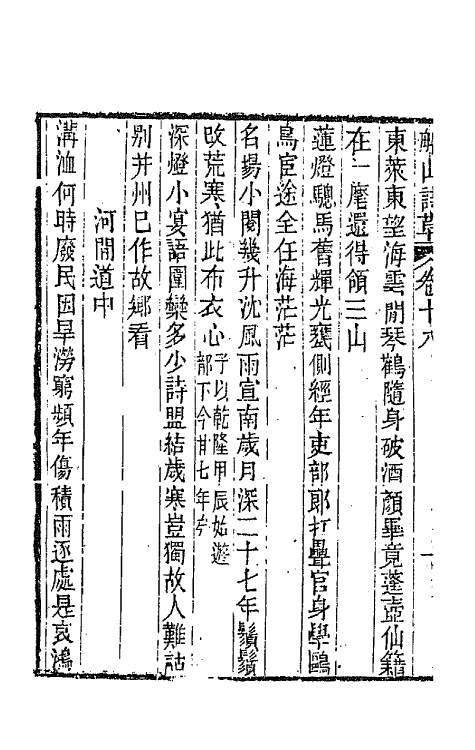 船山詩草 卷十八
東萊東望海雲閒琴鶴隨身破酒顏畢竟蓬壺仙籍
在一麾還得領三山
蓮燈驄馬舊輝光甕側經年吏部郎打疊官身學鷗
鳥宦途全任海茫茫
名場小閱幾升沈風雨宣南歲月深二十七年鬚鬢
改荒寒猶此布衣心予以乾隆甲辰始遊
都下今廿七年矣
深燈小宴語團欒多少詩盟結歲寒豈獨故人難話
別并州已作故鄉看
河間道中
溝洫何時廢民因旱澇窮頻年傷積雨逐處是哀鴻